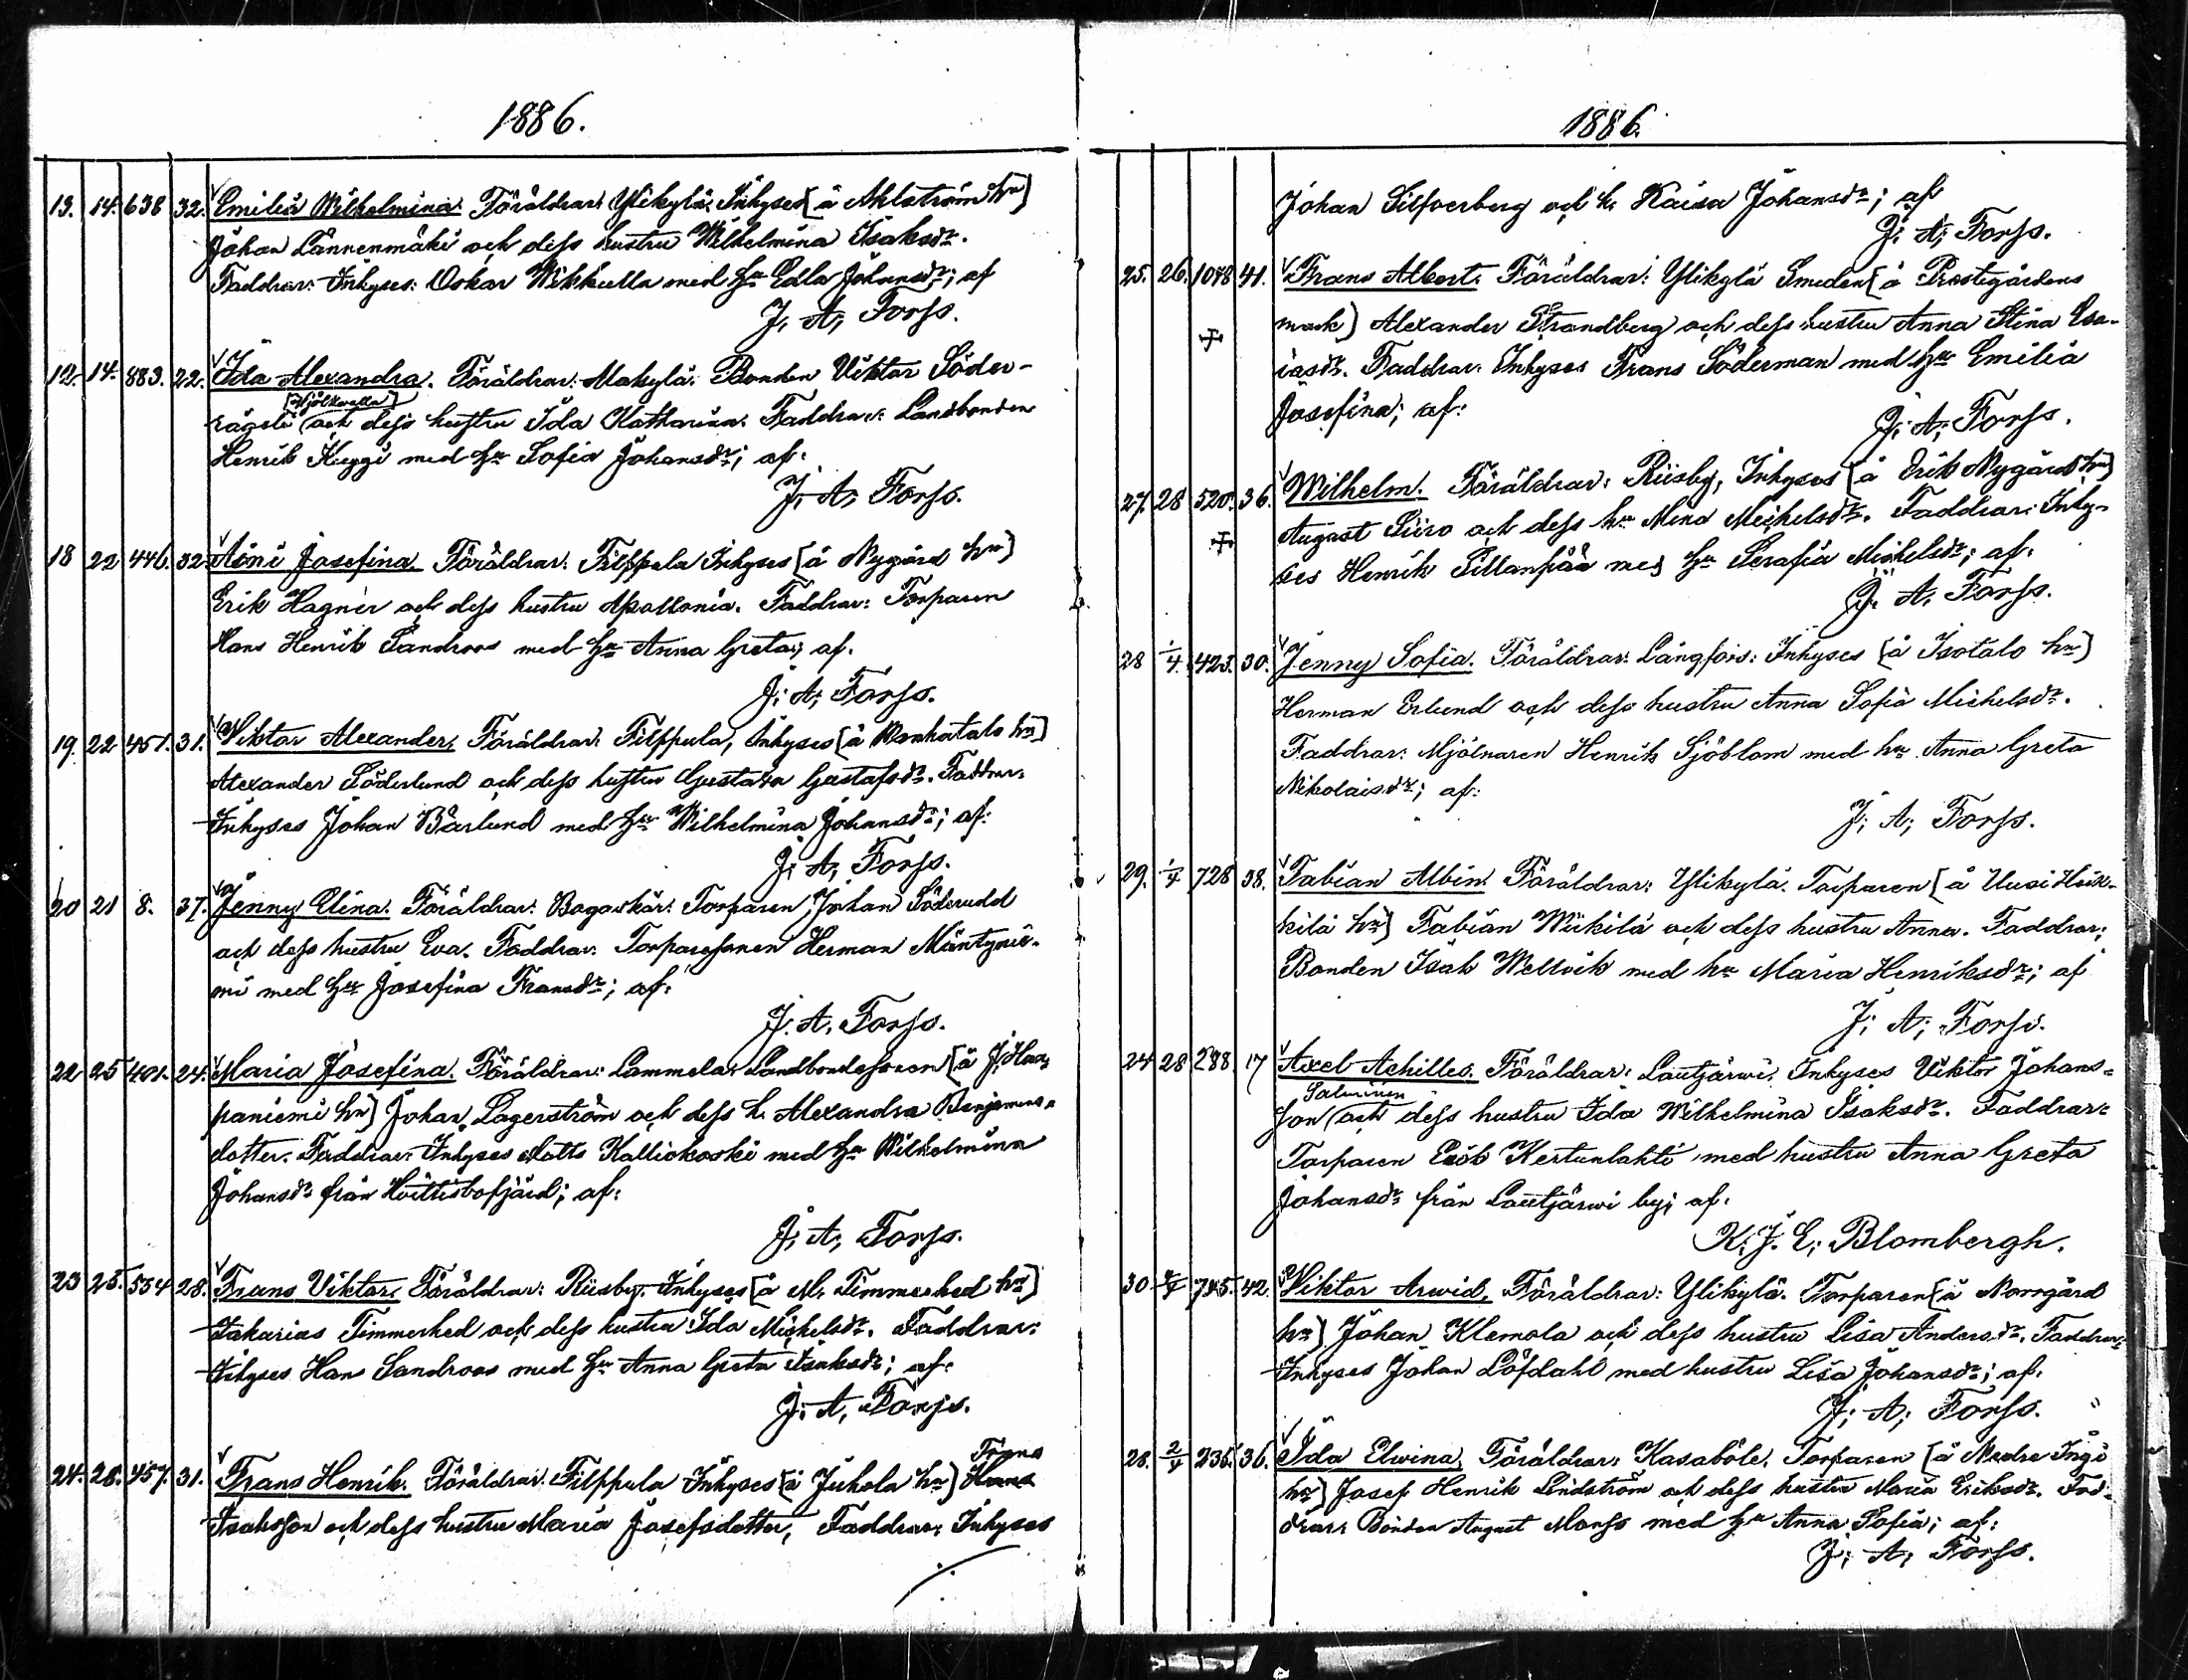 1886.
13. 14. 638 32. Emilia Wilhelmina. Föräldrar: Ylikylä; Inhyses [å Ahlström hn]
Johan Lännenmäki och dess hustru Wilhelmina Isaksdr.
Faddrar: Inhyses: Oskar Wikkulla med hu Edla Johansdr; af
J. A. Forss.
12. 14. 883. 22. Ida Alexandra. Föräldrar: Makylä: Bonden Viktor Söder-
rägeli (och dess hustru Ida Katharina. Faddrar: Landbonden
Henrik Kuggi med hu Sofia Johansdr; af:
J. A. Forss.
18 22 446. 32. Aini Josefina. Föräldrar: Filppula Inhyses [å Nygård hn]
Erik Hagnèr och dess hustru Apollonia. Faddrar: Torparen
Hans Henrik Sandroos med hu Anna Greta; af.
J. A. Forss.
19. 22 451. 31. Viktor Alexander. Föräldrar: Filppula, Inhyses [å Wanhatalo hn]
Alexander Söderlund och dess hustru Gustava Gustafsdr. Faddrar:
Inhyses Johan Bärlund med hu Wilhelmina Johansdr; af:
J. A. Forss.
20 21 8. 37. Jenny Elina. Föräldrar: Bogaskär: Torparen Johan Söderudd
och dess hustru Eva. Faddrar: Torparesonen Herman Mäntynie-
mi med hu Josefina Fransdr; af:
J. A. Forss.
22 25 401. 24. Maria Josefina. Föräldrar: Lammela: Landbondesonen [å J. Haa-
paniemi hn] Johan Lagerström och dess h. Alexandra Benjamins-
dotter. Faddrar: Inhyses Matts Kalliokoski med hu Wilhelmina
Johansdr från Hvittisbofjärd; af:
J. A. Forss.
23 25. 554 28. Frans Viktor. Föräldrar: Riisby. Inhyses [å M. Timmerhed hn]
Zakarias Timmerhed och dess hustru Ida Michelsdr. Faddrar:
Inhyses Hans Sandroos med hu Anna Greta Isaksdr; af:
J. A. Forss.
Frans
24. 28. 457. 31. Frans Henrik. Föräldrar: Filppula Inhyses [å Juhola hn] Hans
Isaksson och dess hustru Maria Josefsdotter, Faddrar: Inhyses
1886.
Johan Silfverberg och h. Kaisa Johansdr; af
J. A. Forss.
25. 26. 1078 41. Frans Albert. Föräldrar: Ylikylä Smeden [å Prestgårdens
mark] Alexander Strandberg och dess hustru Anna Stina Esa-
iasdr. Faddrar: Inhyses Frans Söderman med hu Emilia
Josefina; af:
J. A. Forss.
27. 28 520. 36. Wilhelm. Föräldrar: Riisby, Inhyses [å Erik Nygård hn]
August Siiro och dess hu Mina Michelsdr. Faddrar: Inhy-
ses Henrik Sillanpää med hu Serafia Michelsdr; af:
J. A. Forss.
28 1/4. 423. 30. Jenny Sofia. Föräldrar: Långfors: Inhyses [å Isotalo hn]
Herman Erlund och dess hustru Anna Sofia Michelsdr.
Faddrar: Mjölnaren Henrik Sjöblom med hu Anna Greta
Nikolaisdr; af:
J. A. Forss.
29. 1/4 728 38. Fabian Albin. Föräldrar: Ylikylä. Torparen [å Uusi Heik-
kilä hn] Fabian Wiikilä och dess hustru Anna. Faddrar:
Bonden Isak Wellvik med hu Maria Henriksdr; af
J. A. Forss.
24 28 288 17 Axel Achilles. Föräldrar: Lautjärwi. Inhyses Viktor Johans-
Salminen
son (och dess hustru Ida Wilhelmina Isaksdr. Faddrar:
Torparen Erik Kertunlahti med hustru Anna Greta
Johansdr från Lautjärwi by; af.
K. J. E. Blombergh.
30 745. 42. Viktor Arwid. Föräldrar: Ylikylä. Torparen [å Norrgård
hn] Johan Klemola och dess hustru Lisa Andersdr. Faddrar:
Inhyses Johan Löfdahl med hustru Lisa Johansdr; af.
J. A. Forss.
28. 2/4 236. 36. Ida Elvina. Föräldrar: Kasaböle. Torparen [å Nedre Ingi
hn] Josef Henrik Lindström och dess hustru Maria Eriksdr. Fad-
drar: Bonden August Monss med hu Anna Sofia; af:
J. A. Forss.